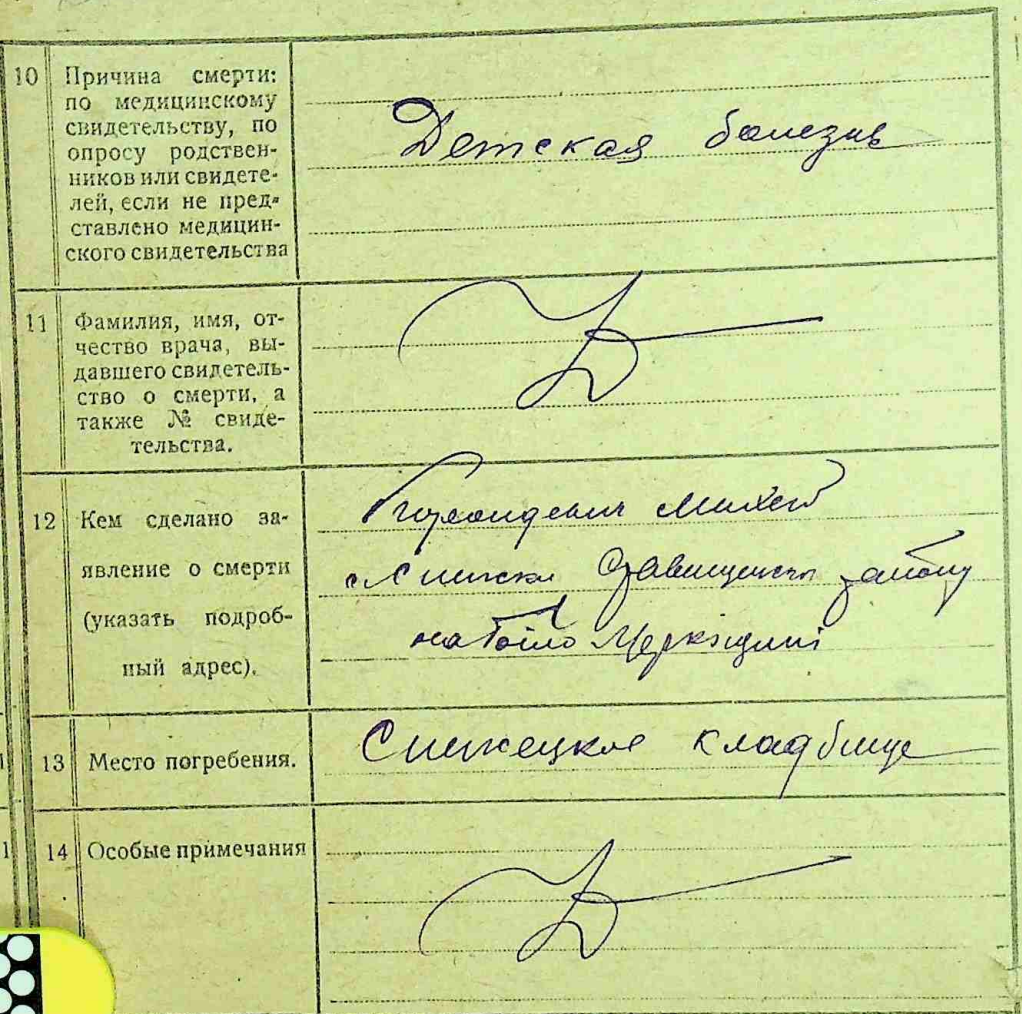 10 Причина смерти:
по медицинскому
свидетельству, по
опросу родствен-
ников или свидете-
лей, если не пред-
ставлено медицин-
ского свидетельства
Детская болезнь
11 Фамилия, имя, от-
чество врача, вы-
давшего свидетель-
ство о смерти, а
также № свиде-
тельства.
12 Кем сделано за-
явление о смерти
(указать подроб-
ный адрес).
Михей
району
13 Место погребения.
кладбище
14 Особые примечания